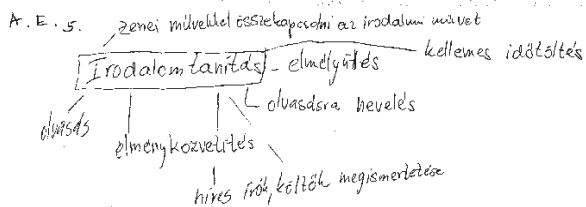 A. E. 5.
zenei művekkel összekapcsolni az irodalmi művet
Irodalomtanítás - elmélyülés
kellemes időtöltés
olvasásra nevelés
olvasás
élményközvetítés
híres írók, költők megismertetése